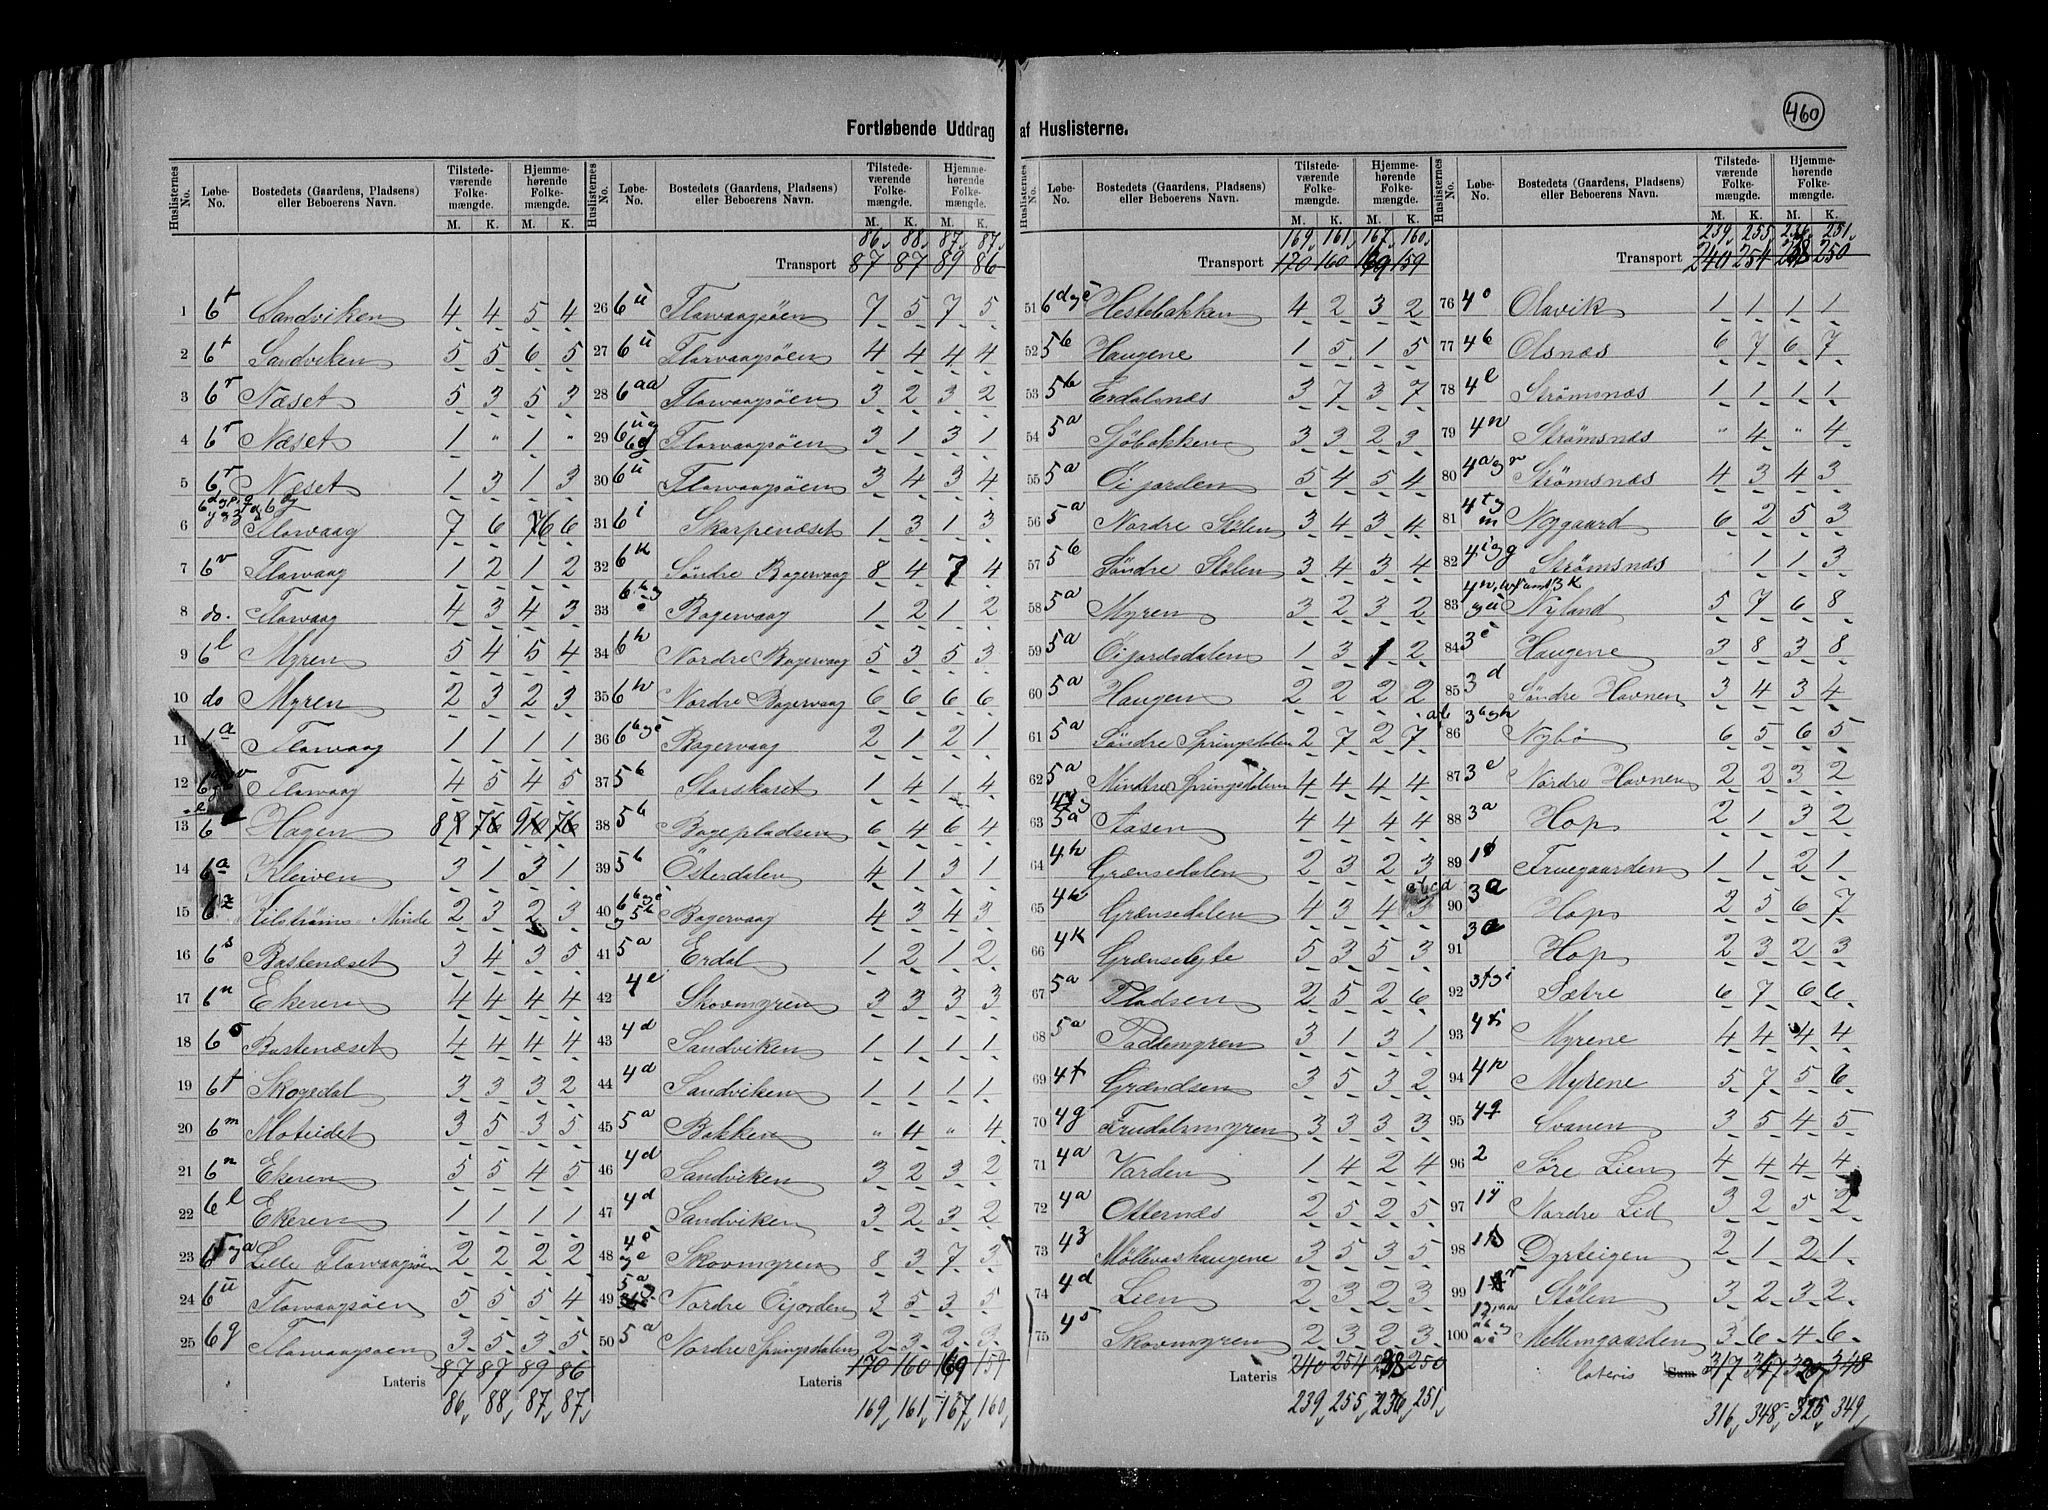 460
Fortløbende Uddrag af Huslisterne.
Huslisternes No. Løbe-No. Bostedets (Gaardens, Pladsens) eller Beboerens Navn. Tilstedeværende Folkemængde. M. K. Hjemmehørende Folkemængde. M. K.
1 6t Sandviken 4 4 5 4
2 6t Sandviken 5 5 6 5
3 6r Næset 5 3 5 3
4 6r Næset 1 " 1 "
5 6r Næset 1 3 1 3
6 Florvaag 7 6 6 6
7 6v Florvaag 1 2 1 2
8 do. Florvaag 4 3 4 3
9 6l Myren 5 4 5 4
10 do Myren 2 3 2 3
11 6a Florvaag 1 1 1 1
12 Florvaag 4 5 4 5
13 6 Hagen 8 6 9 6
14 6a Kleiven 3 1 3 1
15 6z Kilstrøms Minde 2 3 2 3
16 6s Bastenæset 3 4 3 5
17 6n Ekeren 4 4 4 4
18 6s Bastenæset 4 4 4 4
19 6t Skogedal 3 3 3 2
20 6m Moteidet 3 5 3 5
21 6n Ekeren 5 5 4 5
22 6l Ekeren 1 1 1 1
23 Lille Florvaagsøen 2 2 2 2
24 6ü Florvaagsøen 5 5 5 4
25 6g Florvaagsøen 3 5 3 5
Lateris 87 87 89 86
86 88 87 87
Huslisternes No. Løbe-No. Bostedets (Gaardens, Pladsens) eller Beboerens Navn. Tilstedeværende Folkemængde. M. K. Hjemmehørende Folkemængde. M. K.
86 88 87 87
Transport 87 87 89 86
26 6ü Florvaagsøen 7 5 7 5
27 6ü Florvaagsøen 4 4 4 4
28 6aa Florvaagsøen 3 2 3 2
29 6ü og 6g Florvaagsøen 3 1 3 1
30 6ü Florvaagsøen 3 4 3 4
31 6i Skarpenæset 1 3 1 3
32 6k Søndre Bagervaag 8 4 7 4
33 Bagervaag 1 2 1 2
34 6h Nordre Bagervaag 5 3 5 3
35 6h Nordre Bagervaag 6 6 6 6
36 6b og c Bagervaag 2 1 2 1
37 5b Storskaret 1 4 1 4
38 5b Bagepladsen 6 4 6 4
39 5b Österdalen 4 1 3 1
40 6b og c og 5b Bagervaag 4 3 4 3
41 5a Erdal 1 2 1 2
42 4e Skovmyren 3 3 3 3
43 4d Sandviken 1 1 1 1
44 4d Sandviken 1 1 1 1
45 5a Bakken " 4 " 4
46 4d Sandviken 3 2 3 2
47 4d Sandviken 3 2 3 2
48 Skovmyren 8 3 7 3
49 5a Nordre Öijorden 3 5 3 5
50 5a Nordre Springsdalen 2 3 2 3
Lateris 170 160 169 159
169 161 167 160
Huslisternes No. Løbe-No. Bostedets (Gaardens, Pladsens) eller Beboerens Navn. Tilstedeværende Folkemængde. M. K. Hjemmehørende Folkemængde. M. K.
169 161 167 160
Transport 170 160 169 159
51 6d og e Hestebakken 4 2 3 2
52 5b Haugene 1 5 1 5
53 5b Erdalsnæs 3 7 3 7
54 5a Sjöbakken 3 3 2 3
55 5a Öijorden 5 4 5 4
56 5a Nordre Stølen 3 4 3 4
57 5b Søndre Stølen 3 4 3 4
58 5a Myren 3 2 3 2
59 5a Öijordsdalen 1 3 1 2
60 5a Haugen 2 2 2 2
61 5a Søndre Springsdalen 2 7 2 7
62 5a Mindre Springsdalen 4 4 4 4
63 5a Aasen 4 4 4 4
64 4h Grænsedalen 2 3 2 3
65 4h Grænsedalen 4 3 4 3
66 4k Grænseløjte 5 3 5 3
67 5a Pladsen 2 5 2 6
68 5a Paddemyren 3 1 3 1
69 4f Grændsen 3 5 3 2
70 4g Frudalsmyren 3 3 3 3
71 4a Varden 1 4 2 4
72 4a Otternæs 2 5 2 5
73 4z Møllevashaugene 3 5 3 5
74 4d Lien 2 3 2 3
75 4s Skovmyren 2 3 2 3
Lateris 240 254 238 250
239 255 236 251
Huslisternes No. Løbe-No. Bostedets (Gaardens, Pladsens) eller Beboerens Navn. Tilstedeværende Folkemængde. M. K. Hjemmehørende Folkemængde. M. K.
239 255 236 251
Transport 240 254 238 250
76 4o Olavik 1 1 1 1
77 4b Olsnæs 6 7 6 7
78 4l Strømsnæs 1 1 1 1
79 4n Strømsnæs " 4 " 4
80 4a og r Strømsnæs 4 3 4 3
81 4t og m Nygaard 6 2 5 3
82 4i og g Strømsnæs 1 1 3
83 Nyland 5 7 6 8
84 3c Haugene 3 8 3 8
85 3d Søndre Havnen 3 4 3 4
86 3b og h Nybø 6 5 6 5
87 3e Nordre Havnen 2 2 3 2
88 3a Hop 2 1 3 2
89 Fruegaarden 1 1 2 1
90 3a Hop 2 5 6 7
91 3a Hop 2 3 2 3
92 3f og i Sætre 6 7 6 6
93 Myrene 4 4 4 4
94 4p Myrene 5 7 5 6
95 4q Svanen 3 5 4 5
96 2 Søre Lien 4 4 4 4
97 1y Nordre Lid 3 2 5 2
98 Dyrteigen 2 1 2 1
99 Stølen 3 2 3 2
100 Mellemgaarden 3 6 4 6
Lateris Sum 317 347 327 348
316 348 325 349